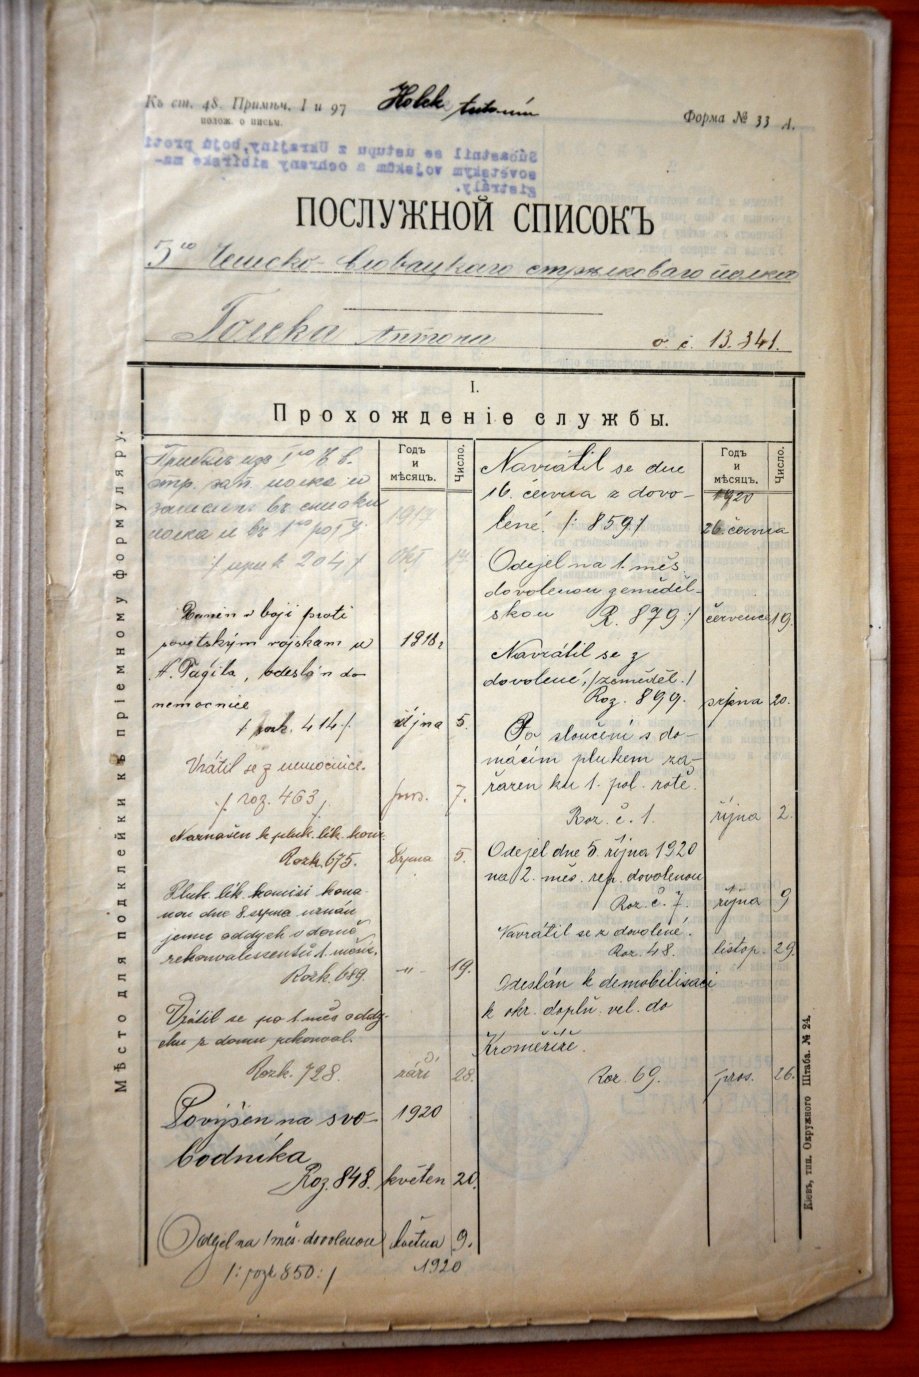 Къ ст. 48. Примѣч. I и 97
полож. о письм.
Holek Antonín
Форма № 33 А.
Súčastnil se ústupu z Ukrajiny, bojů proti
sovětským vojskům a ochrany sibiřské ma-
gistrály.
ПОСЛУЖНОЙ СПИСОКЪ
5го Чешско-Словацкаго стрѣлковаго полка
Голека Антона o. č. 13.341.
I.
Прохожденіе службы.
Годъ и мѣсяцъ.
Число.
Прибылъ изъ 1го Ч. в.
стр. зап. полка и
записанъ въ списки
полка и въ 1ую роту.
/ прик 204 /
1917
окт
14.
Raněn v boji proti
sovětským vojskam u
N. Tagila, odeslán do
nemocnice
/ rozk. 414 /
1918 г
října 5.
Vrátil se z nemocnice.
/ roz. 463 /
pros. 7.
Naznačen k pluk. lék. kom.
Rozk. 675.
srpna 5.
Pluk. lék. komisí kona-
nou dne 8. srpna uznán
jemu oddych v domě
rekonvalescentů 1. měsíc.
Rozk. 689. -„- 19.
Vrátil se po 1 měs oddy-
chu z domu rekonval.
Rozk. 728. září 28.
Povýšen na svo-
bodníka
1920
Roz. 848. květen 20.
Odejel na 1 měs. dovolenou května 9.
/: rozk 850 :/ 1920
Годъ и мѣсяцъ.
Число.
Navrátil se dne
16. června z dovo-
lené. /: 859 /
1920
26. června
Odejel na 1 měs.
dovolenou zeměděl-
skou R. 879 :/ července 19.
Navrátil se z
dovolené, /zeměděl./
Roz. 899. srpna 20.
Po sloučení s do-
mácím plukem za-
řazen ku 1. pol. rotě.
Roz. č. 1. října 2.
Odejel dne 5. října 1920
na 2. měs. rep. dovolenou
Roz. č. 7. října 9
Navrátil se z dovolené.
Roz. 48. listop. 29.
Odeslán k demobilisaci
k okr. doplň. vel. do
Kroměříže.
Roz. 69. pros. 26.
Мѣсто для подклейки къ пріемному формуляру.
Кіевъ, тип. Окружного Штаба. № 24.